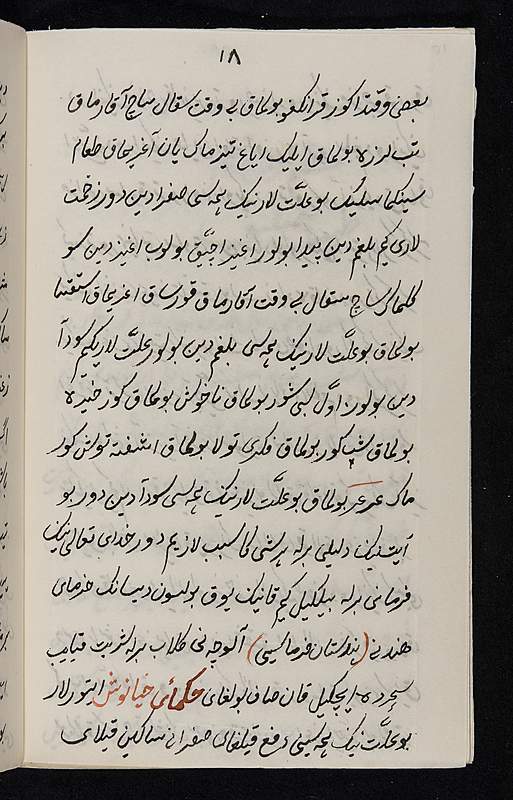 ۱۸
بعضی وقتدا کوز قرانکغو بولماق بی وقت سقال ساچ آقارماق
تب لرزه بولماق ایلیک ایاغ تیتراماک یان آغریماق طعام
سینکماسلیک بو علّت لارنینک همه سی صفرادین دور زحمت
لاری کیم بلغم دین پیدا بولور اغیز اچیّق بولوب اغیز دین سو
کلماک ساچ سقال بی وقت آقارماق قورساق اغریماق استسقا
بولماق بو علّت لارنینک همه سی بلغم دین بولور علّت لاریکیم سودآ
دین بولور اوّل لبی شور بولماق ناخوش بولماق کوز خیره
بولماق شب کور بولماق فکری تولا بولماق اشفته توش کور
ماک عرعر بولماق بو علّت لارنینک همه سی سودآ دین دور بو
آیت نینک دلیلی برله هر شی کا سبب لازیم دور خدای تعالی نینک
فرمانی برله بیلکیل کیم قانینک یوق بولسون دیسانک خرمای
هندنی (هندوستان خرماسینی) آلوچه نی کلاب برله شربت قیلیب
سحرده ایچکیل قان صاف بولغای حکمای خیانوش ایتورلار
بو علّت نینک همه سینی دفع قیلغای صفرانی ساکن قیلای